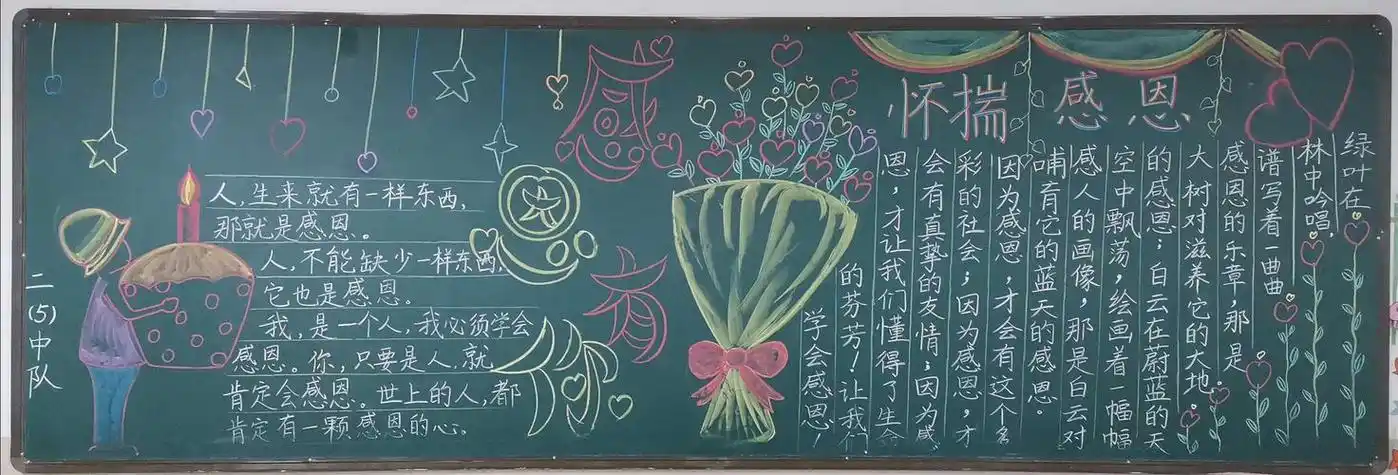 怀揣感恩
感
恩
有
你
二(5)中队
人，生来就有一样东西，
那就是感恩。
人，不能缺少一样东西，
它也是感恩。
我，是一个人，我必须学会
感恩。你，只要是人，就
肯定会感恩。世上的人，都
肯定有一颗感恩的心。
绿叶在
林中吟唱，
谱写着一曲曲
感恩的乐章，那是
大树对滋养它的大地。
的感恩；白云在蔚蓝的天
空中飘荡，绘画着一幅幅
感人的画像，那是白云对
哺育它的蓝天的感恩。
因为感恩，才会有这个多
彩的社会；因为感恩，才
会有真挚的友情；因为感
恩，才让我们懂得了生命
的芬芳！让我们
学会感恩！